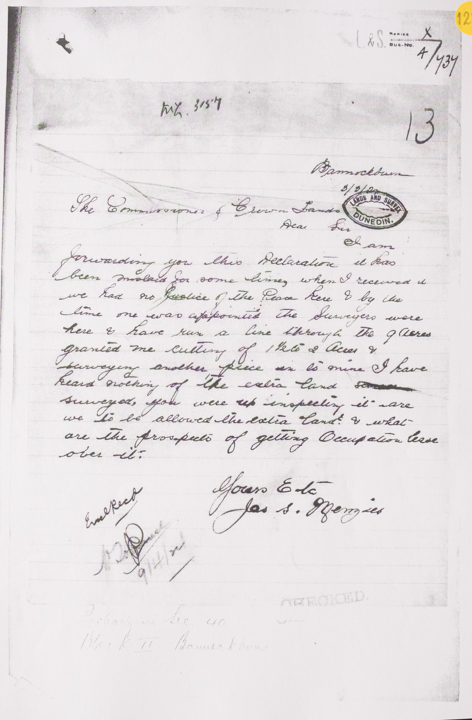 12
L & S. X
4/737
ML. 3157
13
Bannockburn
LANDS AND SURVEY
DUNEDIN.
The Commissioner of Crown Lands
Dear Sir
I am
forwarding you this Declaration it has
been mislaid for some time, when I received it
we had no Justice of the Peace here & by the
time one was appointed the Surveyors were
here & have run a line through the 9 Acres
granted me cutting of 1½ to 2 Acres &
surveying another piece on to mine I have
heard nothing of the extra land
surveyed you were up inspecting it are
we to be allowed the extra land? & what
are the prospects of getting Occupation lease
over it.
Yours Etc
Jas S. Menzies
9/4/24
Blk II Bannockburn